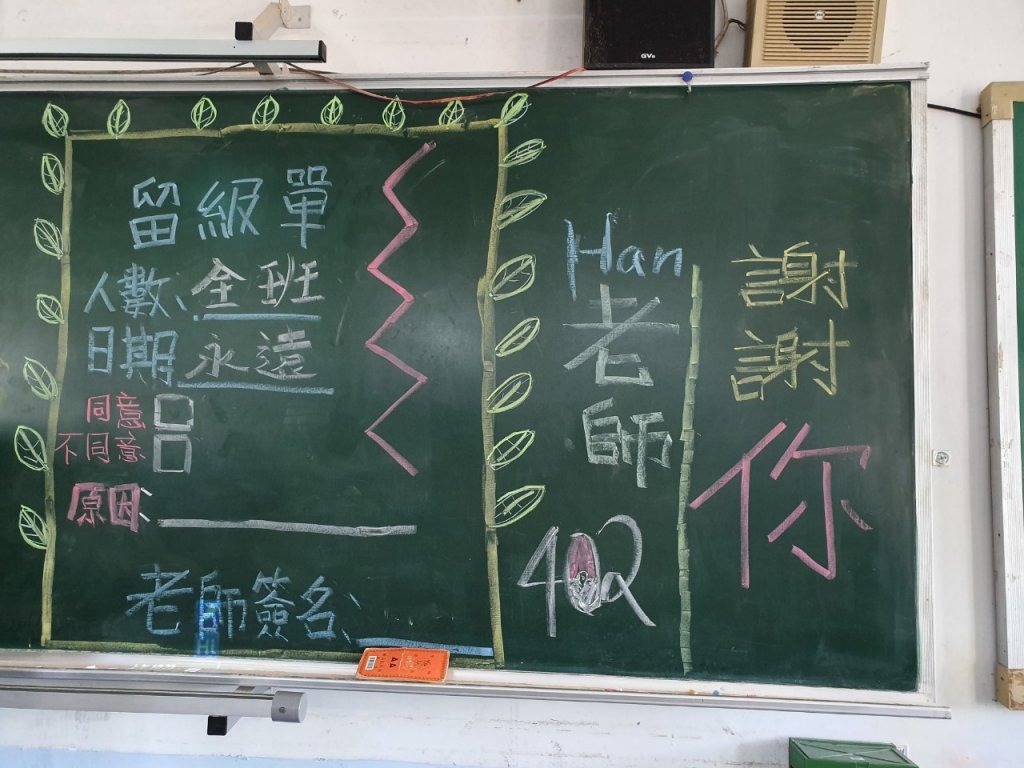 GVs
留級單
人數、全班
日期 永遠
同意
不同意
原因:
老師簽名、
Han
老
師
402
謝
謝
你